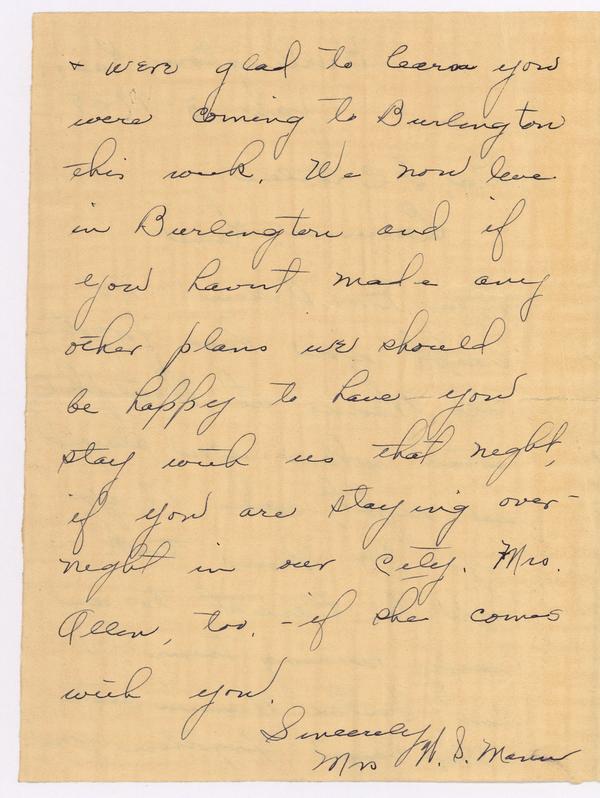 + were glad to learn you
were coming to Burlington
this week. We now live
in Burlington and if
you havnt made any
other plans we should
be happy to have you
stay with us that night,
if you are staying over-
night in our city. Mrs.
Allen, too, - if she comes
with you.
Sincerely
Mrs W. S. Mann